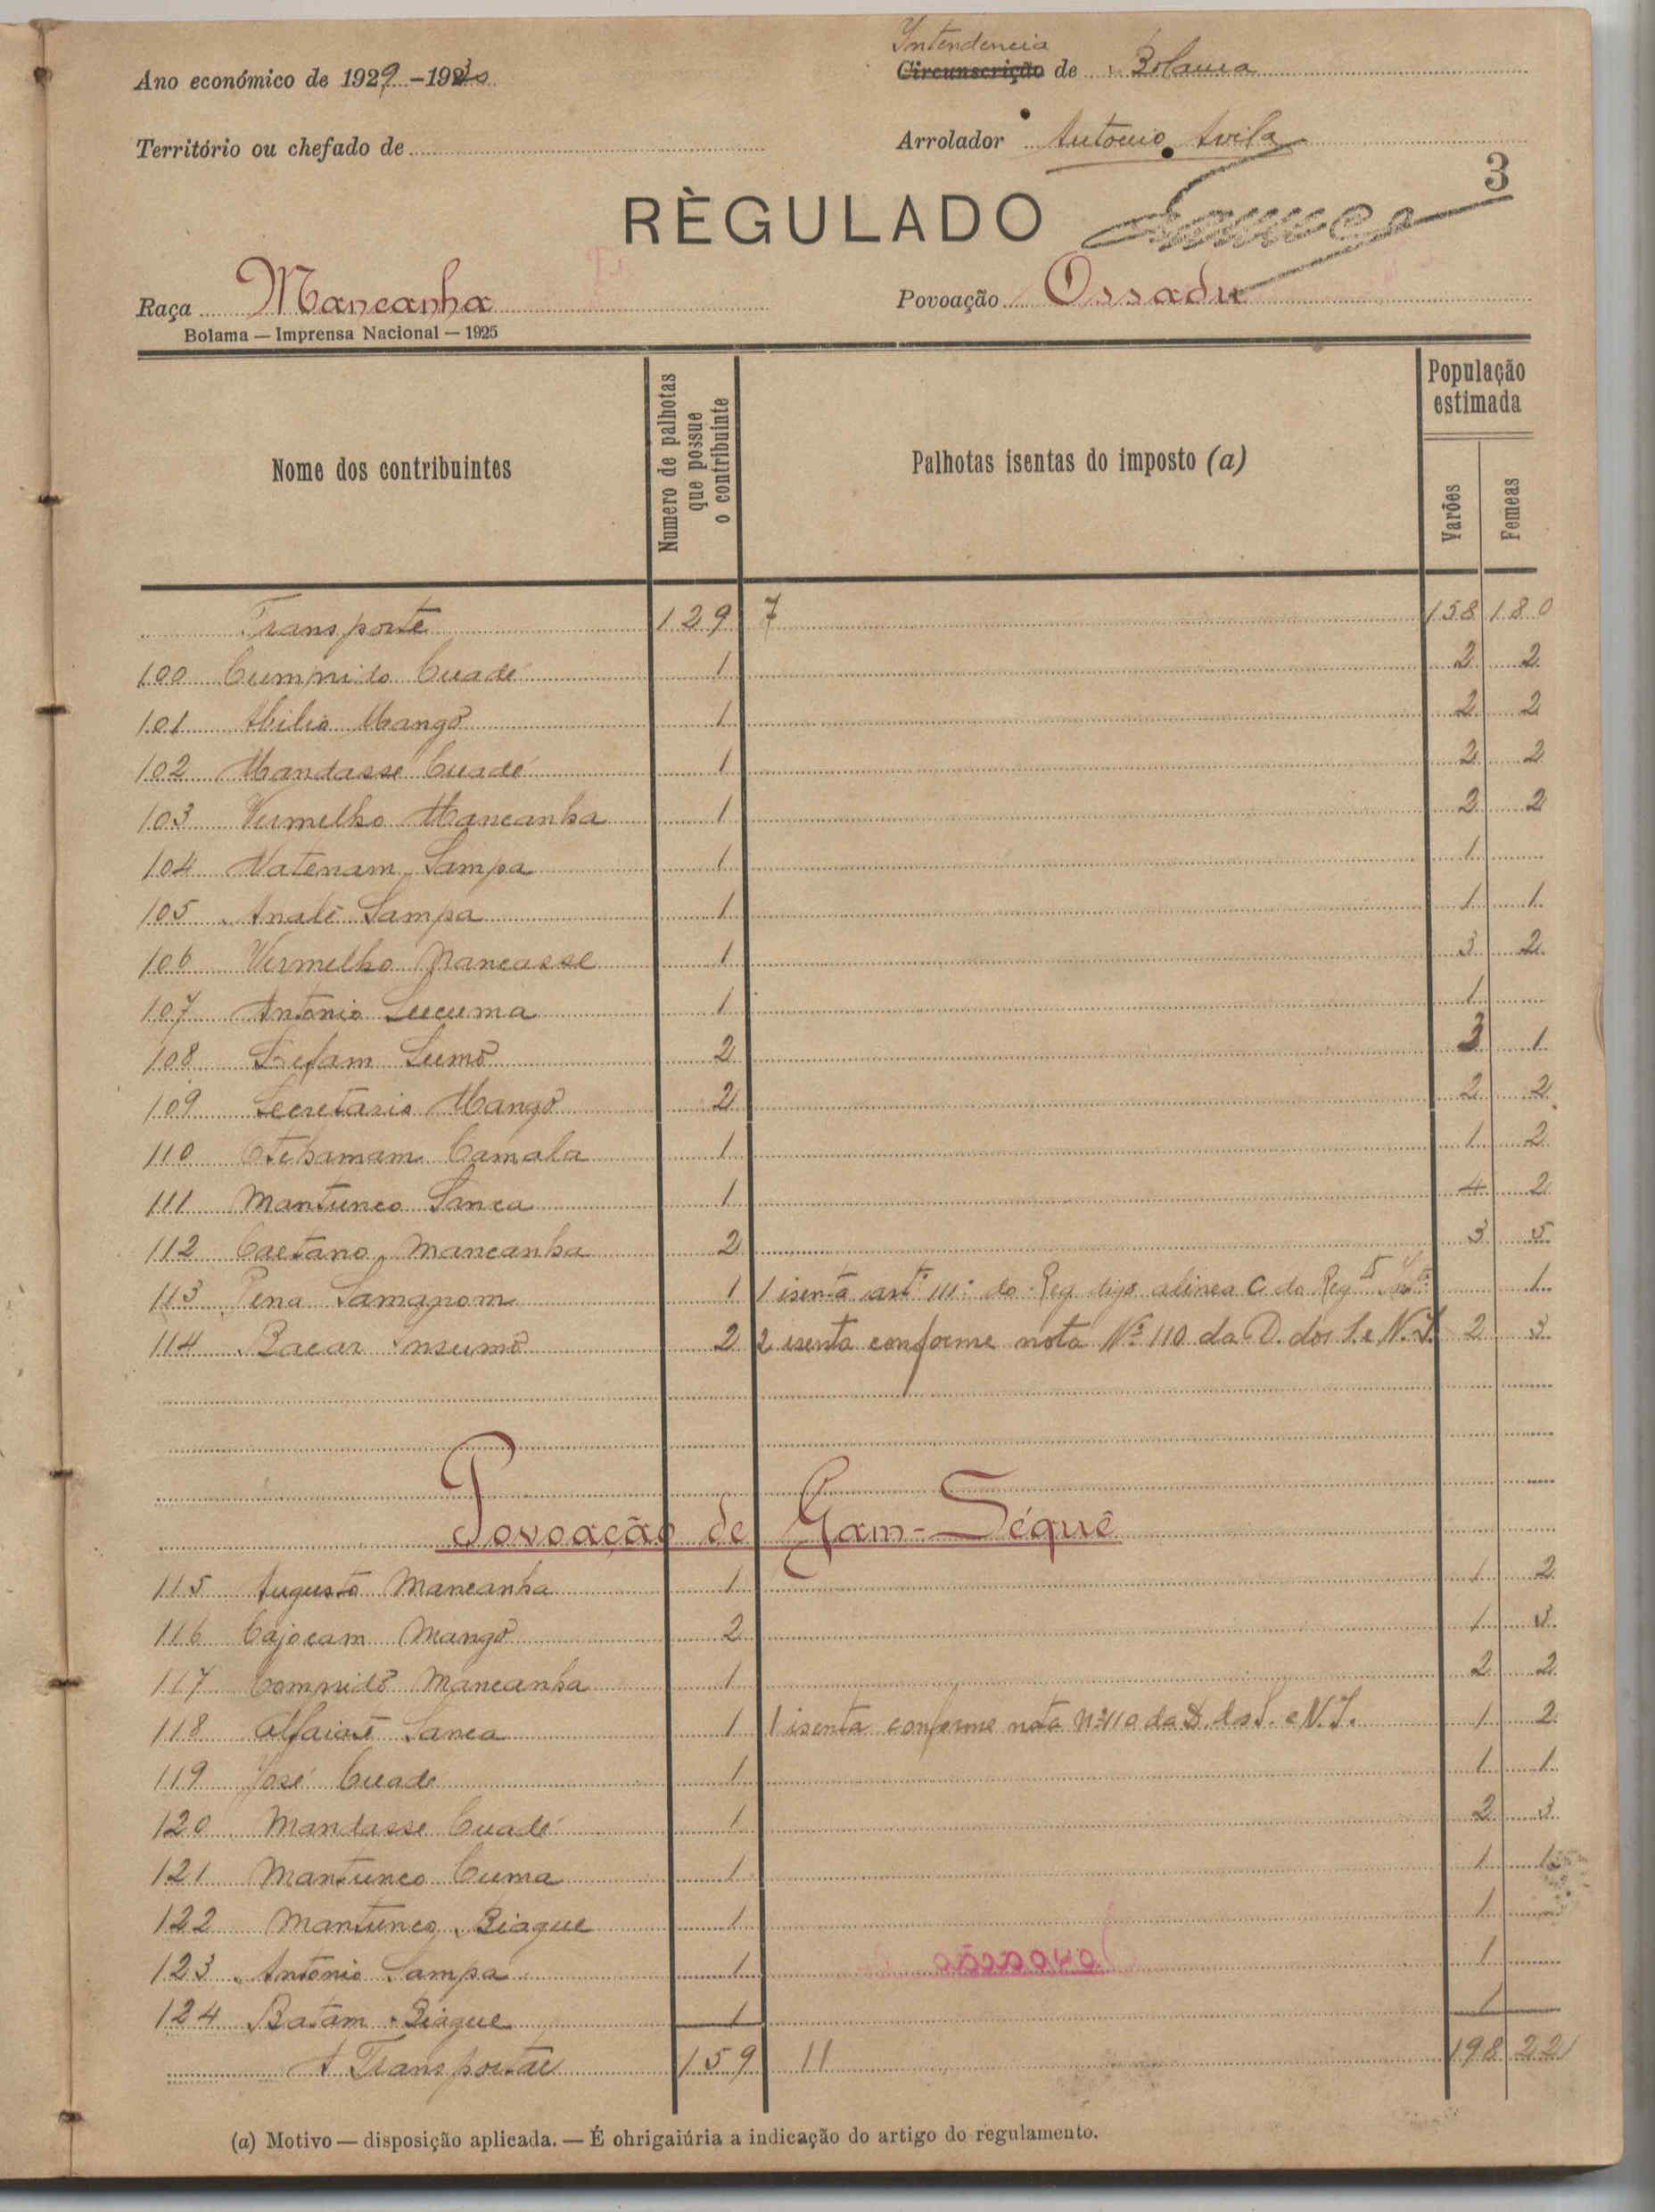 Intendencia
Ano económico de 1929-1930 Circunscrição de Bolama
Território ou chefado de Arrolador Antonio Avila
3
RÈGULADO
Raça Mancanha Povoação Ossadu
Bolama — Imprensa Nacional — 1925
Nome dos contribuintes
Numero de palhotas que possue o contribuinte
Palhotas isentas do imposto (a)
População estimada
Varões Femeas
Transporte 129 7 158 180
100 Cumprido Cuadé 1 2 2
101 Abilio Mangô 1 2 2
102 Mandasse Cuadé 1 2 2
103 Vermelho Mancanha 1 2 2
104 Natenam Sampa 1 1
105 Analé Sampa 1 1 1
106 Vermelho Mancasse 1 3 2
107 António Lucuma 1 1
108 Lumô 2 3 1
109 Secretario Mangô 2 2 2
110 Otchamam Camala 1 1 2
111 Mantunco Sanca 1 4 2
112 Caetano Mancanha 2 3 5
113 Pena 1 1 isenta artº 111º do Reg digo alinea C do Reg 1
114 Bacar Insumô 2 2 isenta conforme nota Nº 110 da D. dos S. e N. I. 2 3
Povoação de Gam-Séquê
115 Augusto Mancanha 1 1 2
116 Cajocam Mangô 2 1 3
117 Comprido Mancanha 1 2 2
118 Alfaiate Sanca 1 1 isenta conforme nota nº 110 da D. dos S. e N. I. 1 2
119 José Cuadé 1 1 1
120 Mandasse Cuadé 1 2 3
121 Mantunco Cuma 1 1 1
122 Mantunco Biague 1 1
123 António Sampa 1 1
124 Batam Biague 1 1
A Transportar 159 11 198 221
(a) Motivo — disposição aplicada. — É ohrigaiúria a indicação do artigo do regulamento.